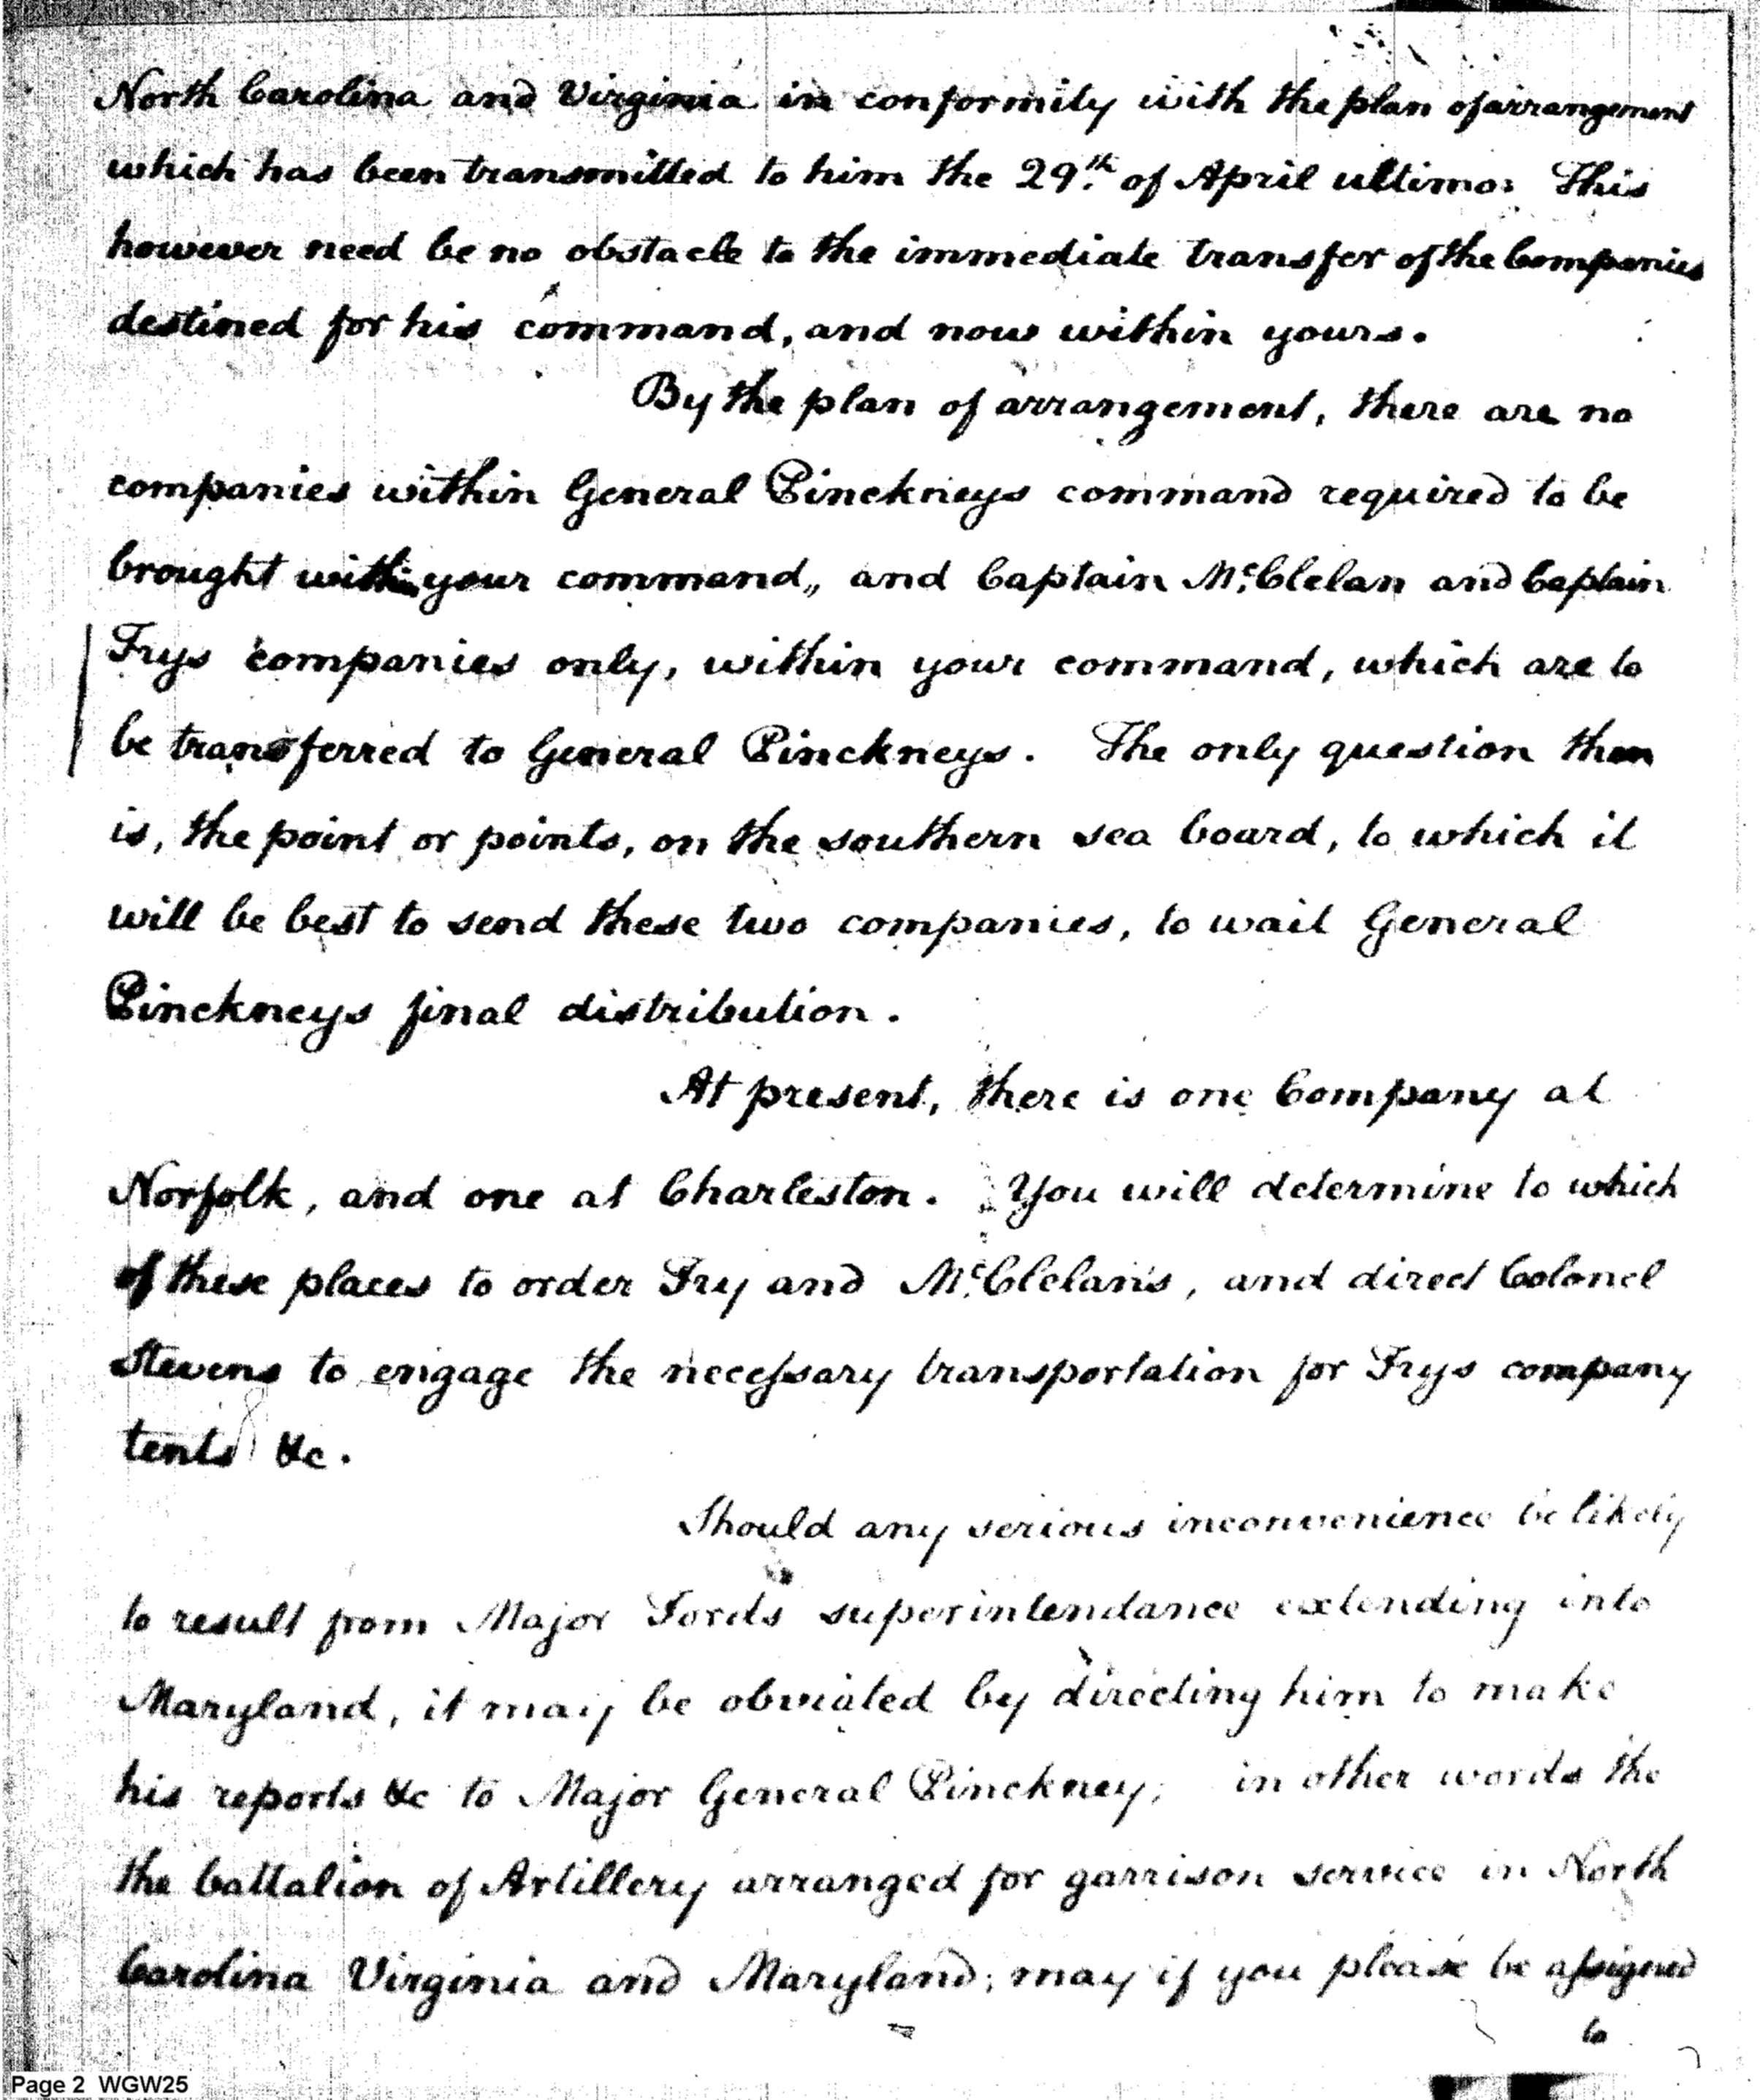 North Carolina and Virginia in conformity with the plan of arrangement
which has been transmitted to him the 29th of April ultimo: This
however need be no obstacle to the immediate transfer of the Companies
destined for his command, and now within yours.
By the plan of arrangement, there are no
companies within General Pinckneys command required to be
brought within your command,, and Captain McClelan and Captain
Frys companies only, within your command, which are to
be transferred to General Pinckneys. The only question then
is, the point or points, on the southern sea board, to which it
will be best to send these two companies, to wait General
Pinckneys final distribution.
At present, there is one Company at
Norfolk, and one at Charleston. You will determine to which
of these places to order Fry and McClelan's, and direct Colonel
Stevens to engage the necessary transportation for Frys company
tents &c.
Should any serious inconvenience be likely
to result from Major Fords superintendance extending into
Maryland, it may be obviated by directing him to make
his reports &c to Major General Pinckney; in other words the
the battalion of Artillery arranged for garrison service in North
Carolina Virginia and Maryland; may if you please be assigned
to
Page 2 WGW25